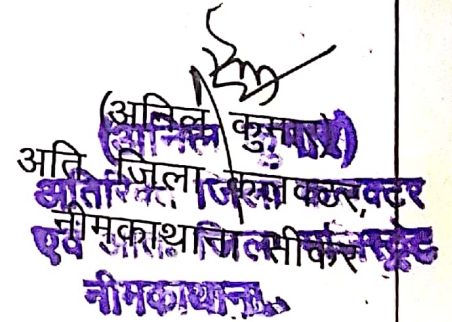 (अनिल कुमार)
अति. जिला कलक्टर,
नीमकाथाना सीकर
(अनिल कुमार)
अतिरिक्त जिला कलक्टर
एवं अति. जिला
नीमकाथाना